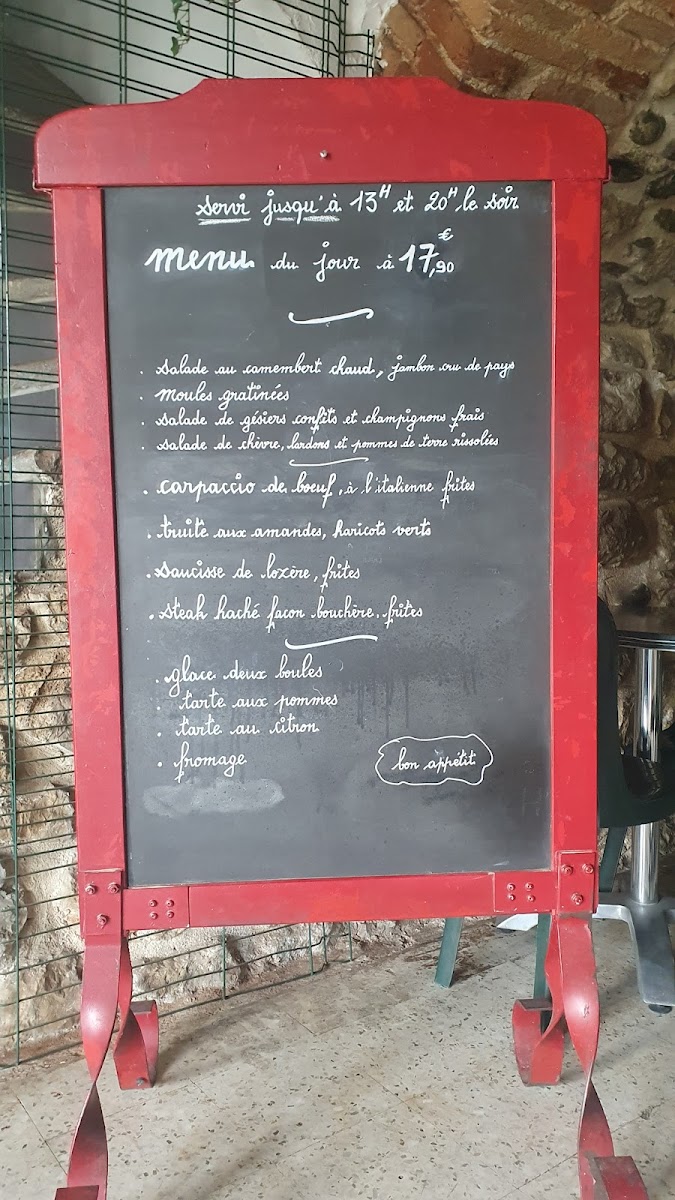 servi jusqu'à 13H et 20H le soir
menu du jour à 17,90€
. salade au camembert chaud, jambon cru de pays
. moules gratinées
. salade de gésiers confits et champignons frais
. salade de chèvre, lardons et pommes de terre rissolées
. carpaccio de boeuf, à l'italienne frites
. truite aux amandes, haricots verts
. saucisse de lozère, frites
. steak haché façon bouchère, frites
. glace deux boules
. tarte aux pommes
. tarte au citron
. fromage
bon appétit